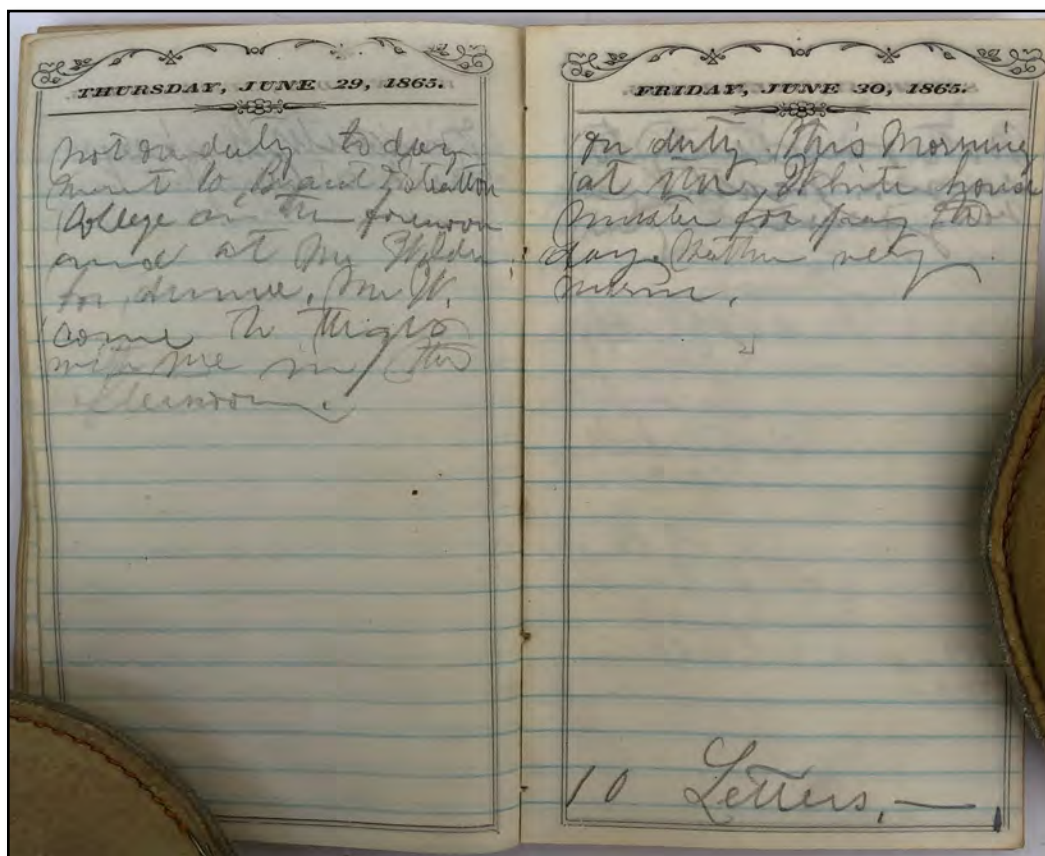 THURSDAY, JUNE 29, 1865.
not on duty to day
went to Bryant & Stratton
College in the forenoon
and at Mr
for dinner. Mr W.
come to
with me in the
afternoon.
FRIDAY, JUNE 30, 1865.
on duty this Morning
at the White house
muster for pay to
day. Weather very
warm.
10 Letters. —